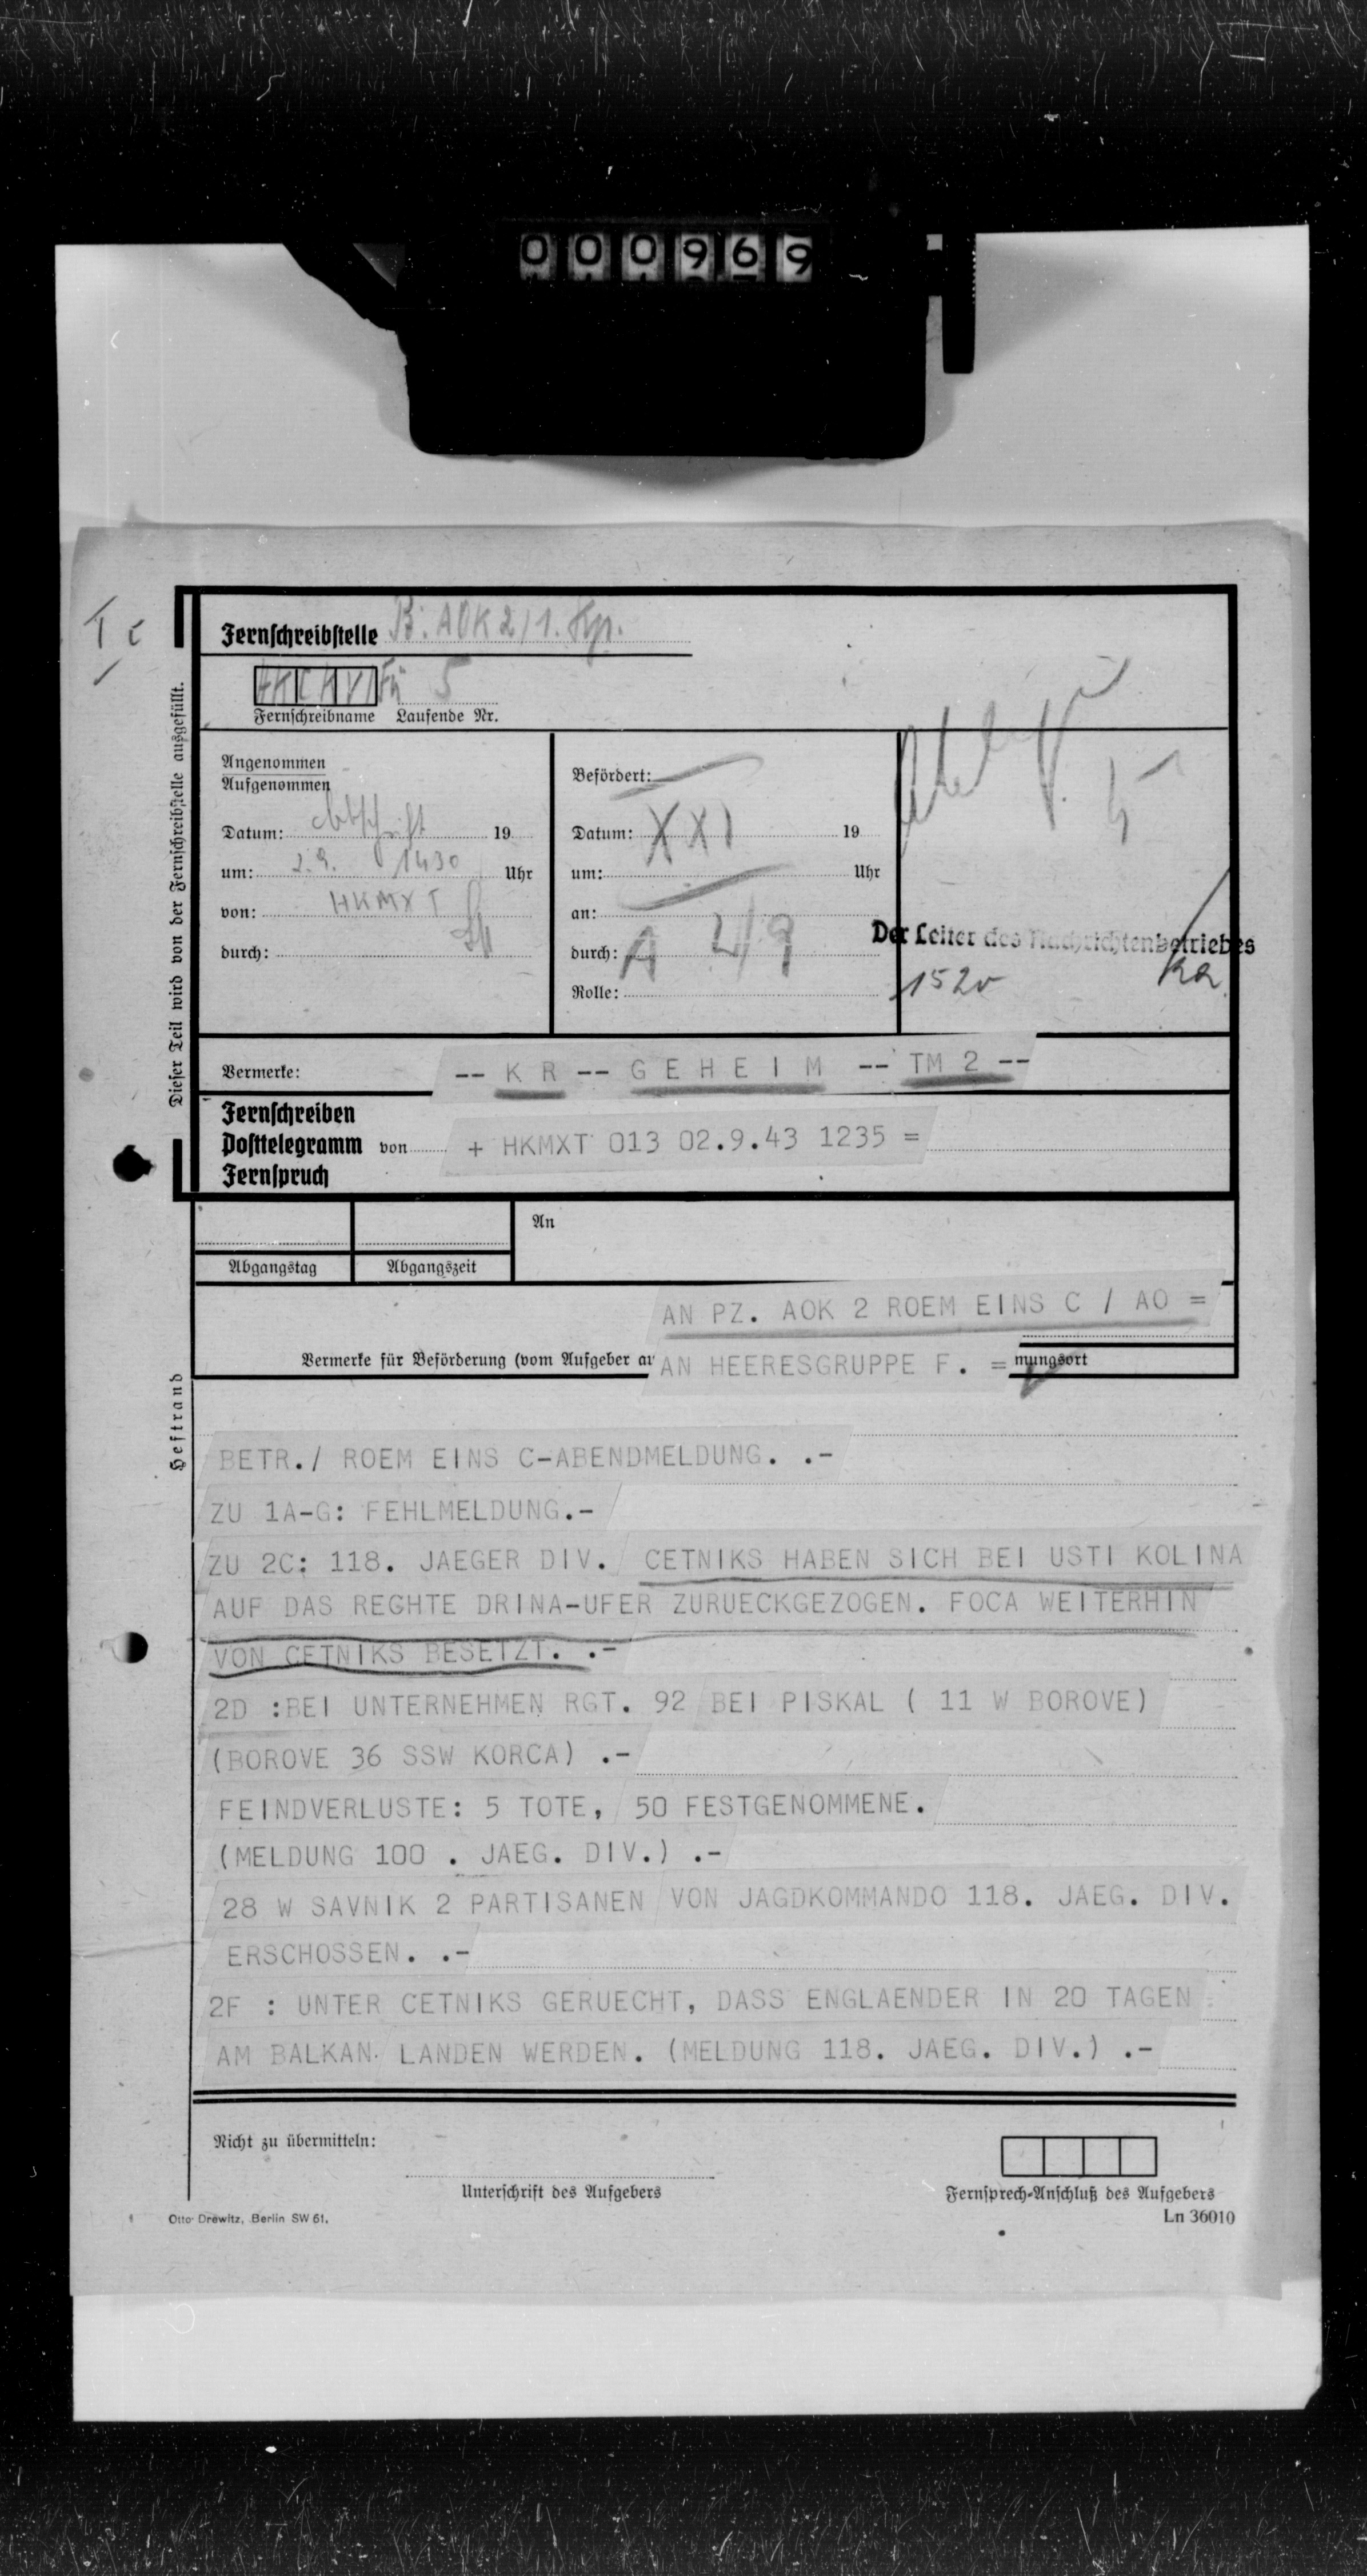 000969
Ic
Fernschreibstelle B. AOK 2/1. Kp.
HKCKV Fü 5
Fernschreibname Laufende Nr.
Dieser Teil wird von der Fernschreibstelle ausgefüllt.
Angenommen
Aufgenommen
Datum: 19
um: 2.9. 1430 Uhr
von: HKMXT
durch:
Befördert:
Datum: XXI 19
um: Uhr
an:
durch: A 4/9
Rolle:
Der Leiter des Nachrichtenbetriebes
1520
Vermerke: -- K R -- G E H E I M -- TM 2 --
Fernschreiben
Posttelegramm von + HKMXT 013 02.9.43 1235 =
Fernspruch
Abgangstag Abgangszeit
An
AN PZ. AOK 2 ROEM EINS C / AO =
Vermerke für Beförderung (vom Aufgeber au AN HEERESGRUPPE F. = mungsort
Heftrand
BETR./ ROEM EINS C-ABENDMELDUNG. .-
ZU 1A-G: FEHLMELDUNG.-
ZU 2C: 118. JAEGER DIV. CETNIKS HABEN SICH BEI USTI KOLINA
AUF DAS REGHTE DRINA-UFER ZURUECKGEZOGEN. FOCA WEITERHIN
VON CETNIKS BESETZT. .-
2D :BEI UNTERNEHMEN RGT. 92 BEI PISKAL ( 11 W BOROVE)
(BOROVE 36 SSW KORCA) .-
FEINDVERLUSTE: 5 TOTE, 50 FESTGENOMMENE.
(MELDUNG 100 . JAEG. DIV.) .-
28 W SAVNIK 2 PARTISANEN VON JAGDKOMMANDO 118. JAEG. DIV.
ERSCHOSSEN. .-
2F : UNTER CETNIKS GERUECHT, DASS ENGLAENDER IN 20 TAGEN
AM BALKAN LANDEN WERDEN. (MELDUNG 118. JAEG. DIV.) .-
Nicht zu übermitteln:
Unterschrift des Aufgebers
Fernsprech-Anschluß des Aufgebers
Otto Drewitz, Berlin SW 61.
Ln 36010